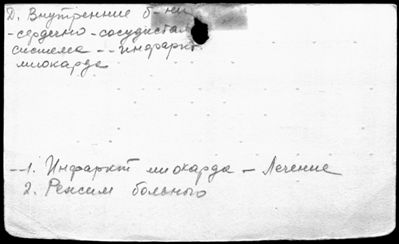 Д. Внутренние б-ни
- сердечно-сосудистая
система -- инфаркт
миокарда
--1. Инфаркт миокарда - Лечение
2. Режим больного